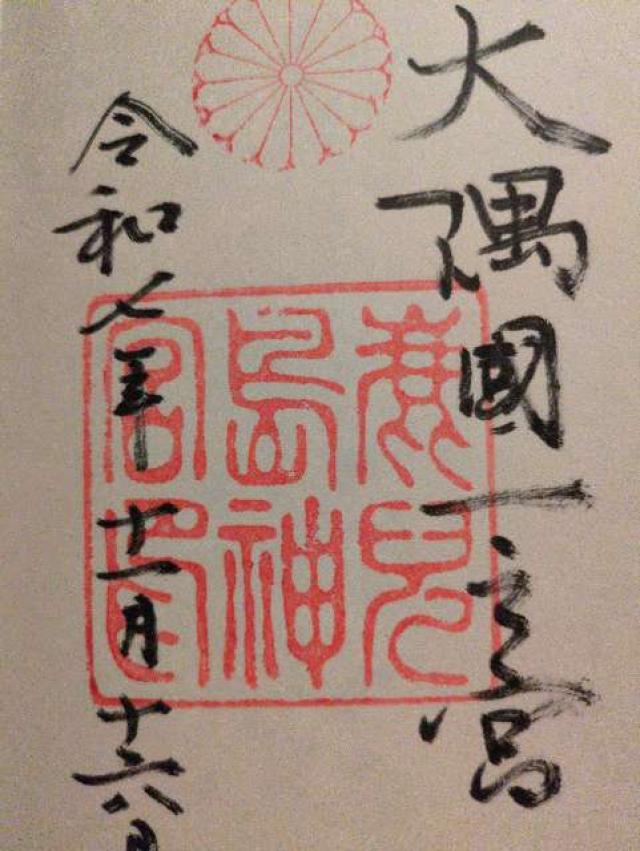 大隅國一之宮
鹿兒
島神
宮印
令和七年十一月十六日